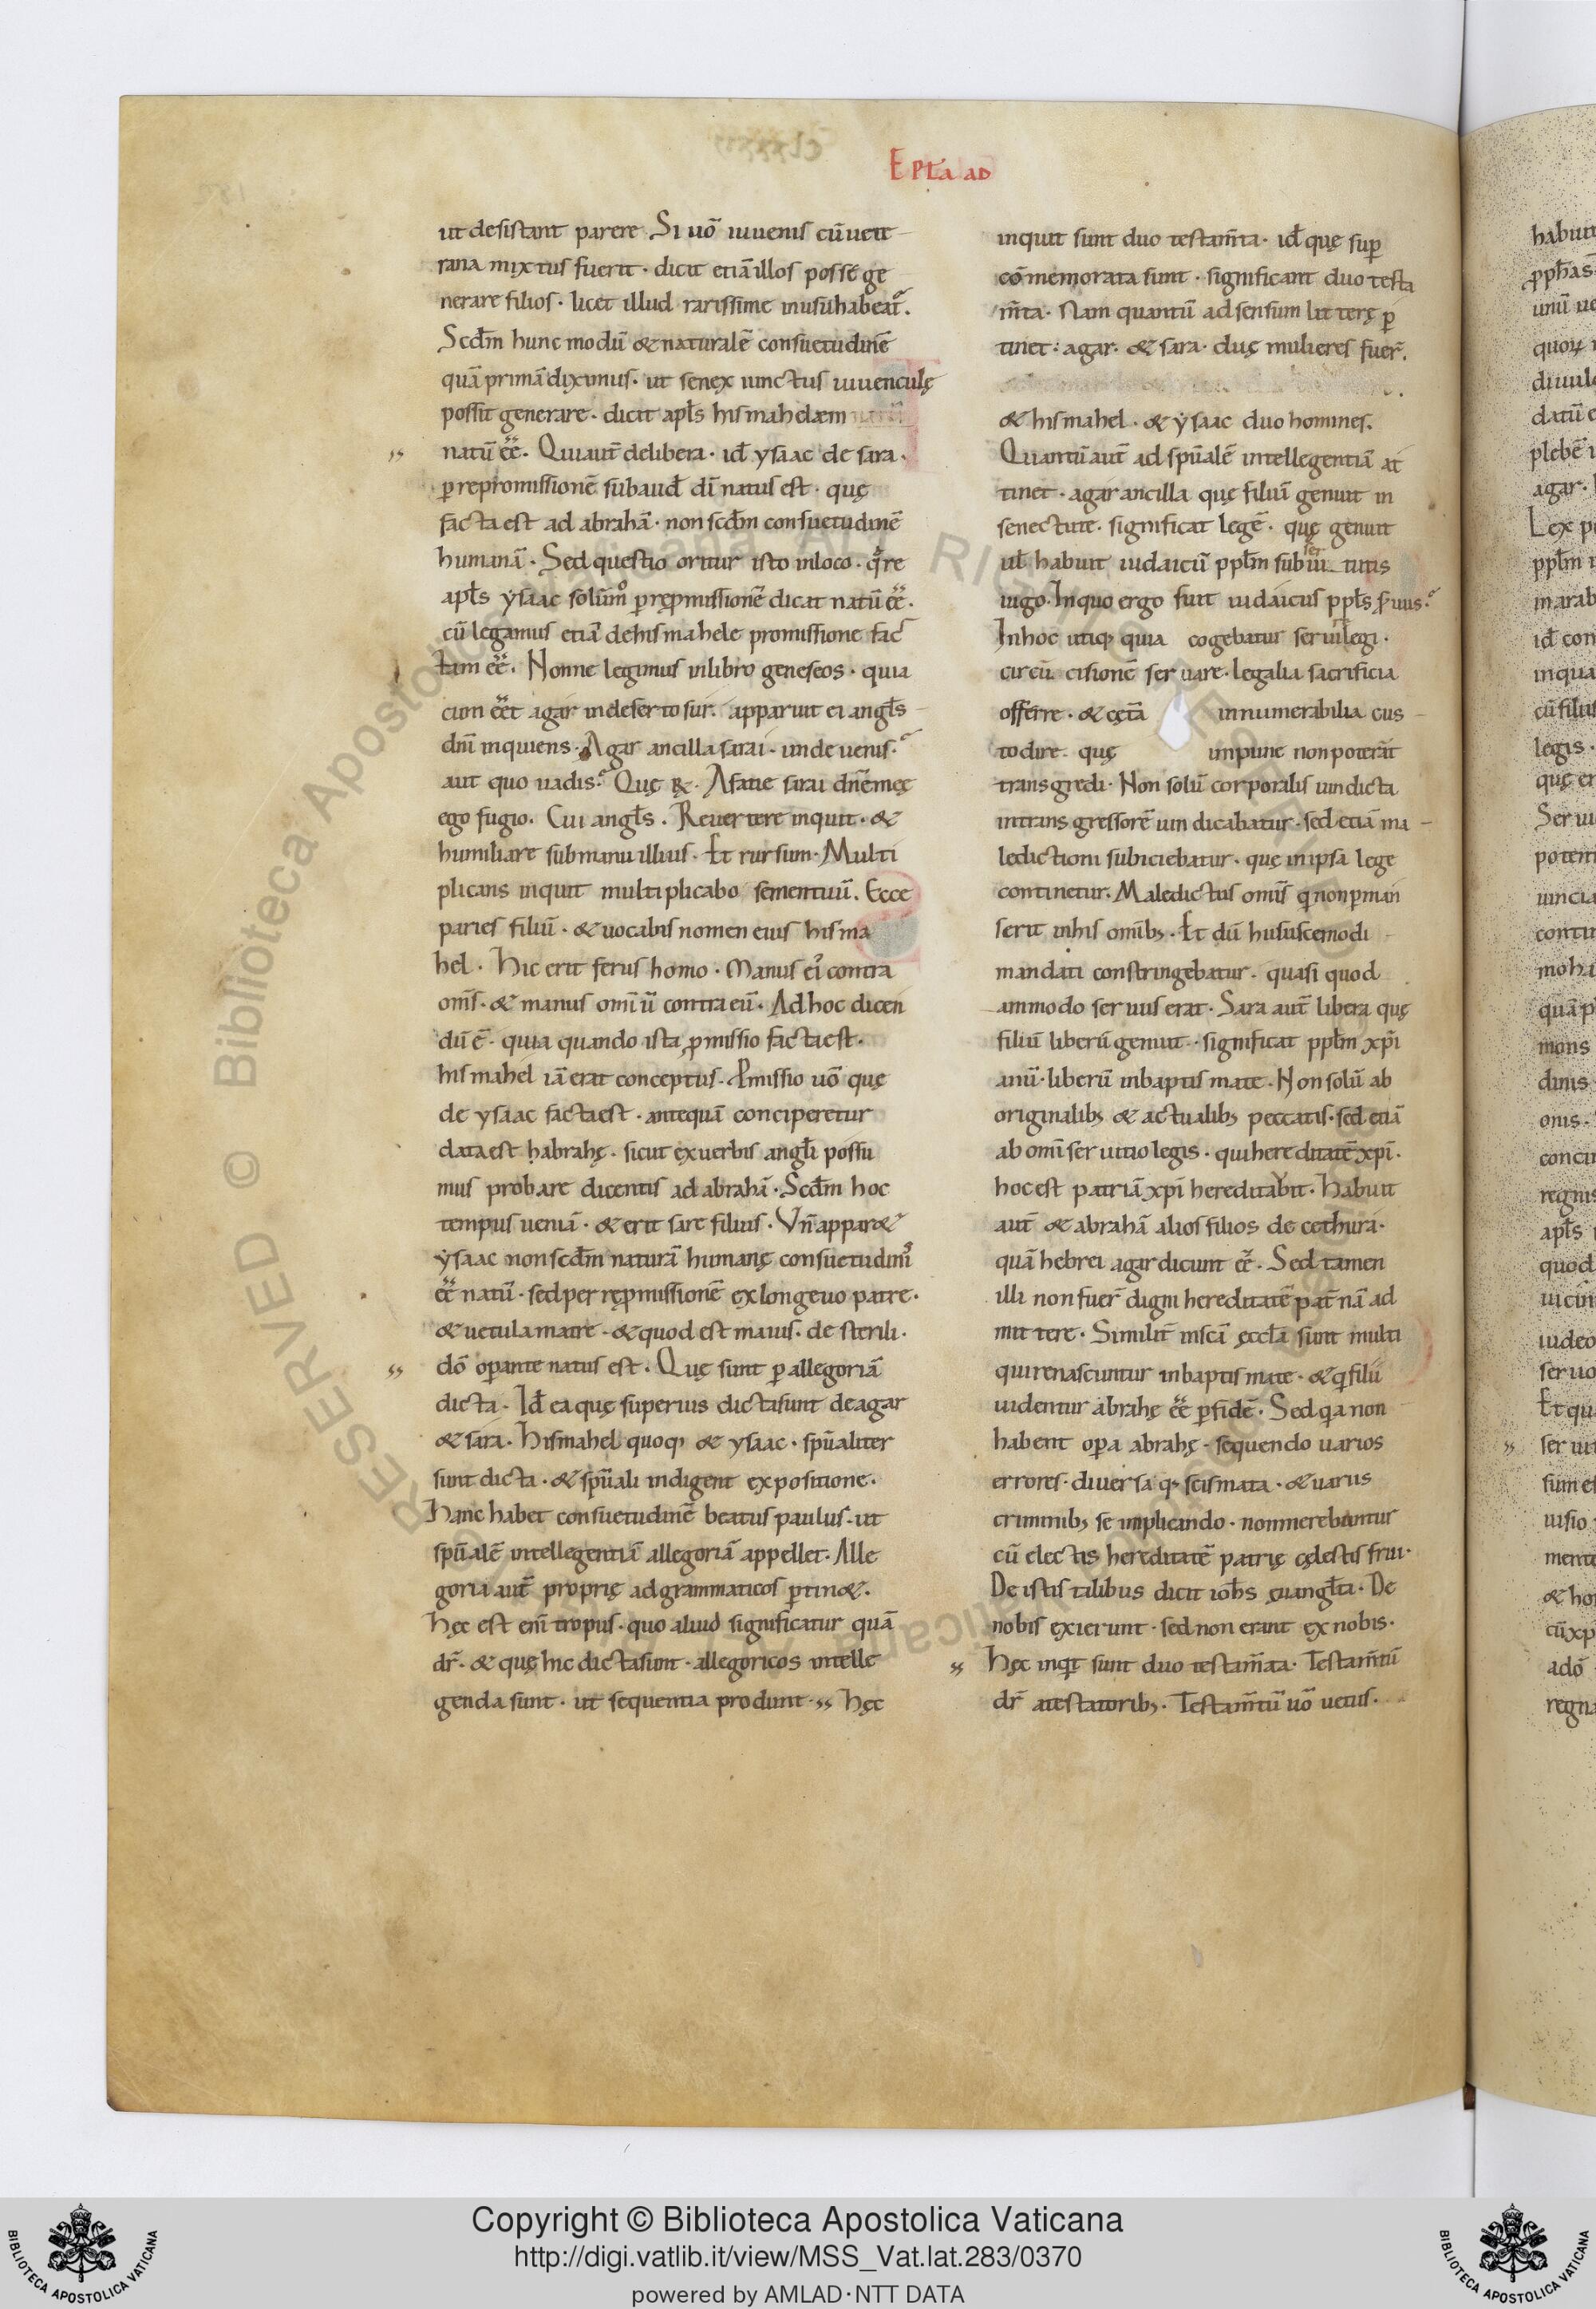 Ep̄la ad
ut desistant parere. Si uō iuuenis cū uete
rana mixtus fuerit · dicit etiā illos posse ge
nerare filios · licet illud rarissime in usu habeat̄.
Scd̄m hunc modū & naturalē consuetudinē
quā primā diximus · ut senex iunctus iuuenculę
possit generare · dicit apl̄s hismahelæm
natū eē̄. Qui aut̄ de libera · id̄ ysaac de sara ·
p̄ repromissionē subaud̄ dī natus est · quę
facta est ad abrahā · non scd̄m consuetudinē
humanā · Sed questio oritur isto in loco · qͣre
apl̄s ysaac solūmͦ p̄ rep̄missionē dicat natū eē̄ ·
cū legamus etiā de hismahele promissione fac
tam eē̄. Nonne legimus in libro geneseos · quia
cum eēt agar in deserto sur · apparuit ei angl̄s
dn̄i inquiens · Agar ancilla sarai · unde uenis ·
aut quo uadis · Quę R̄ · A facie sarai dn̄ę meę
ego fugio. Cui angl̄s. Reuertere inquit · &
humiliare sub manu illius · Et rursum · Multi
plicans inquit multiplicabo semen tuū. Ecce
paries filiū · & uocabis nomen eius hisma
hel · Hic erit ferus homo · Manus ei᾽ contra
om̄s · & manus omīū contra eū · Ad hoc dicen
dū ē · quia quando ista p̄missio facta est ·
hismahel iā erat conceptus · P̄missio uō quę
de ysaac facta est · antequā conciperetur
data est habrahę · sicut ex uerbis angl̄i possu
mus probare dicentis ad abrahā · Scd̄m hoc
tempus ueniā · & erit sare filius · Vn̄ appar&
ysaac non scd̄m naturā humanę consuetudinī
eē̄ natū · sed per rep̄missionē ex longeuo patre ·
& uetula matre · & quod est maius · de sterili ·
dō operante natus est · Quę sunt p̄ allegoriā
dicta · Id̄ ea quę superius dicta sunt de agar
& sara · Hismahel quoq; & ysaac · spūaliter
sunt dicta · & spūali indigent expositione ·
Hanc habet consuetudinē beatus paulus · ut
spūalē intellegentiā allegoriā appellet · Alle
goria aut̄ proprię ad grammaticos p̄tin& ·
Hęc est enī tropus · quo aliud significatur quā
dr̄ · & quę hic dicta sunt · allegoricos intelle
genda sunt · ut sequentia produnt · Hęc
inquit sunt duo testam̄ta · id̄ quę sup̄
cō memorata sunt · significant duo testa
m̄ta · Nam quantū ad sensum litterę p̄
tinet : agar · & sara · duę mulieres fuer̄.
& hismahel · & ysaac duo homines.
Quantū aut̄ ad spūalē intellegentiā at
tinet · agar ancilla quę filiū genuit in
senectute · significat legē · quę genuit
ul̄ habuit iudaicū ppl̄m sub ser uitutis
iugo · In quo ergo fuit iudaicus ppl̄s s̄uus ·
In hoc utiq; quia cogebatur seruire legi ·
circū cisionē seruare · legalia sacrificia
offerre · & cętā innumerabilia cus
todire · quę impune non poterāt
transgredi · Non solū corporalis uindicta
in transgressorē uindicabatur · sed etiā ma
ledictioni subiciebatur · quę in ipsa lege
continetur · Maledictus omīs q non p̄man
serit in his omīb; · Et dū huiuscemodi
mandati constringebatur · quasi quod
ammodo seruus erat · Sara aut̄ libera quę
filiū liberū genuit · significat ppl̄m xp̄i
anū · liberū in baptismate · Non solū ab
originalib; & actualib; peccatis · sed etiā
ab omī seruitio legis · qui hereditatē xp̄i ·
hoc est patriā xp̄i hereditabit · Habuit
aut̄ & abrahā alios filios de cethura ·
quā hebrei agar dicunt eē̄ · Sed tamen
illi non fuer̄ digni hereditatē pat̄nā ad
mittere · Similit̄ in scā ęccl̄a sunt multi
qui renascuntur in baptismate · & q filii
uidentur abrahę eē̄ p̄ fidē · Sed qa non
habent op̄a abrahę · sequendo uarios
errores · diuersa q; scismata · & uariis
criminib; se implicando · non merebuntur
cū electis hereditatē patrię cęlestis frui ·
De istis talibus dicit ioh̄s ęuangl̄ta · De
nobis exierunt · sed non erant ex nobis ·
Hęc inqt sunt duo testam̄ta · Testam̄tū
dr̄ a testatorib; · Testam̄tū uō uetus ·
Copyright © Biblioteca Apostolica Vaticana
http://digi.vatlib.it/view/MSS_Vat.lat.283/0370
powered by AMLAD·NTT DATA
BIBLIOTECA APOSTOLICA VATICANA
BIBLIOTECA APOSTOLICA VATICANA